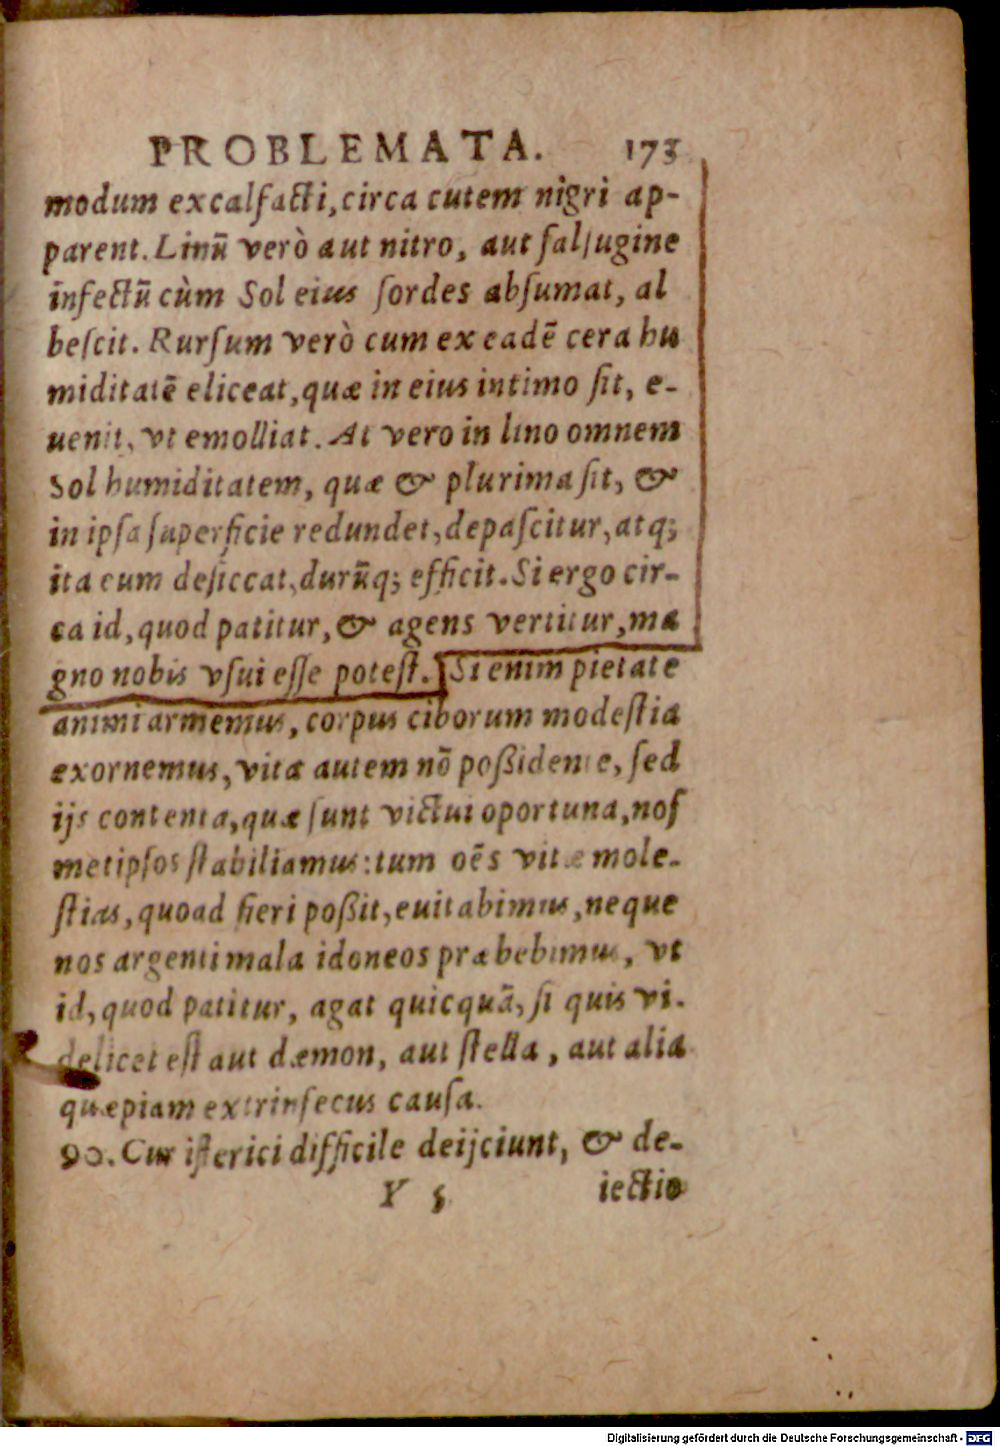 PROBLEMATA. 173
modum excalfacti, circa cutem nigri ap-
parent. Linū verò aut nitro, aut salsugine
infectū cùm Sol eius sordes absumat, al
bescit. Rursum verò cum ex eadē cera hu
miditatē eliceat, quæ in eius intimo sit, e-
uenit, vt emolliat. At vero in lino omnem
Sol humiditatem, quæ & plurima sit, &
in ipsa superficie redundet, depascitur, atq;
ita cum desiccat, durūq; efficit. Si ergo cir-
ca id, quod patitur, & agens vertitur, ma
gno nobis vsui esse potest. Si enim pietate
animi armemus, corpus ciborum modestia
exornemus, vitæ autem nō possidente, sed
ijs contenta, quæ sunt victui oportuna, nos
metipsos stabiliamus: tum oēs vitæ mole-
stias, quoad fieri possit, euitabimus, neque
nos argenti mala idoneos præbebimus, vt
id, quod patitur, agat quicquā, si quis vi-
delicet est aut dæmon, aut stella, aut alia
quæpiam extrinsecus causa.
90. Cur isterici difficile deijciunt, & de-
Y 5 iectio
Digitalisierung gefördert durch die Deutsche Forschungsgemeinschaft - DFG